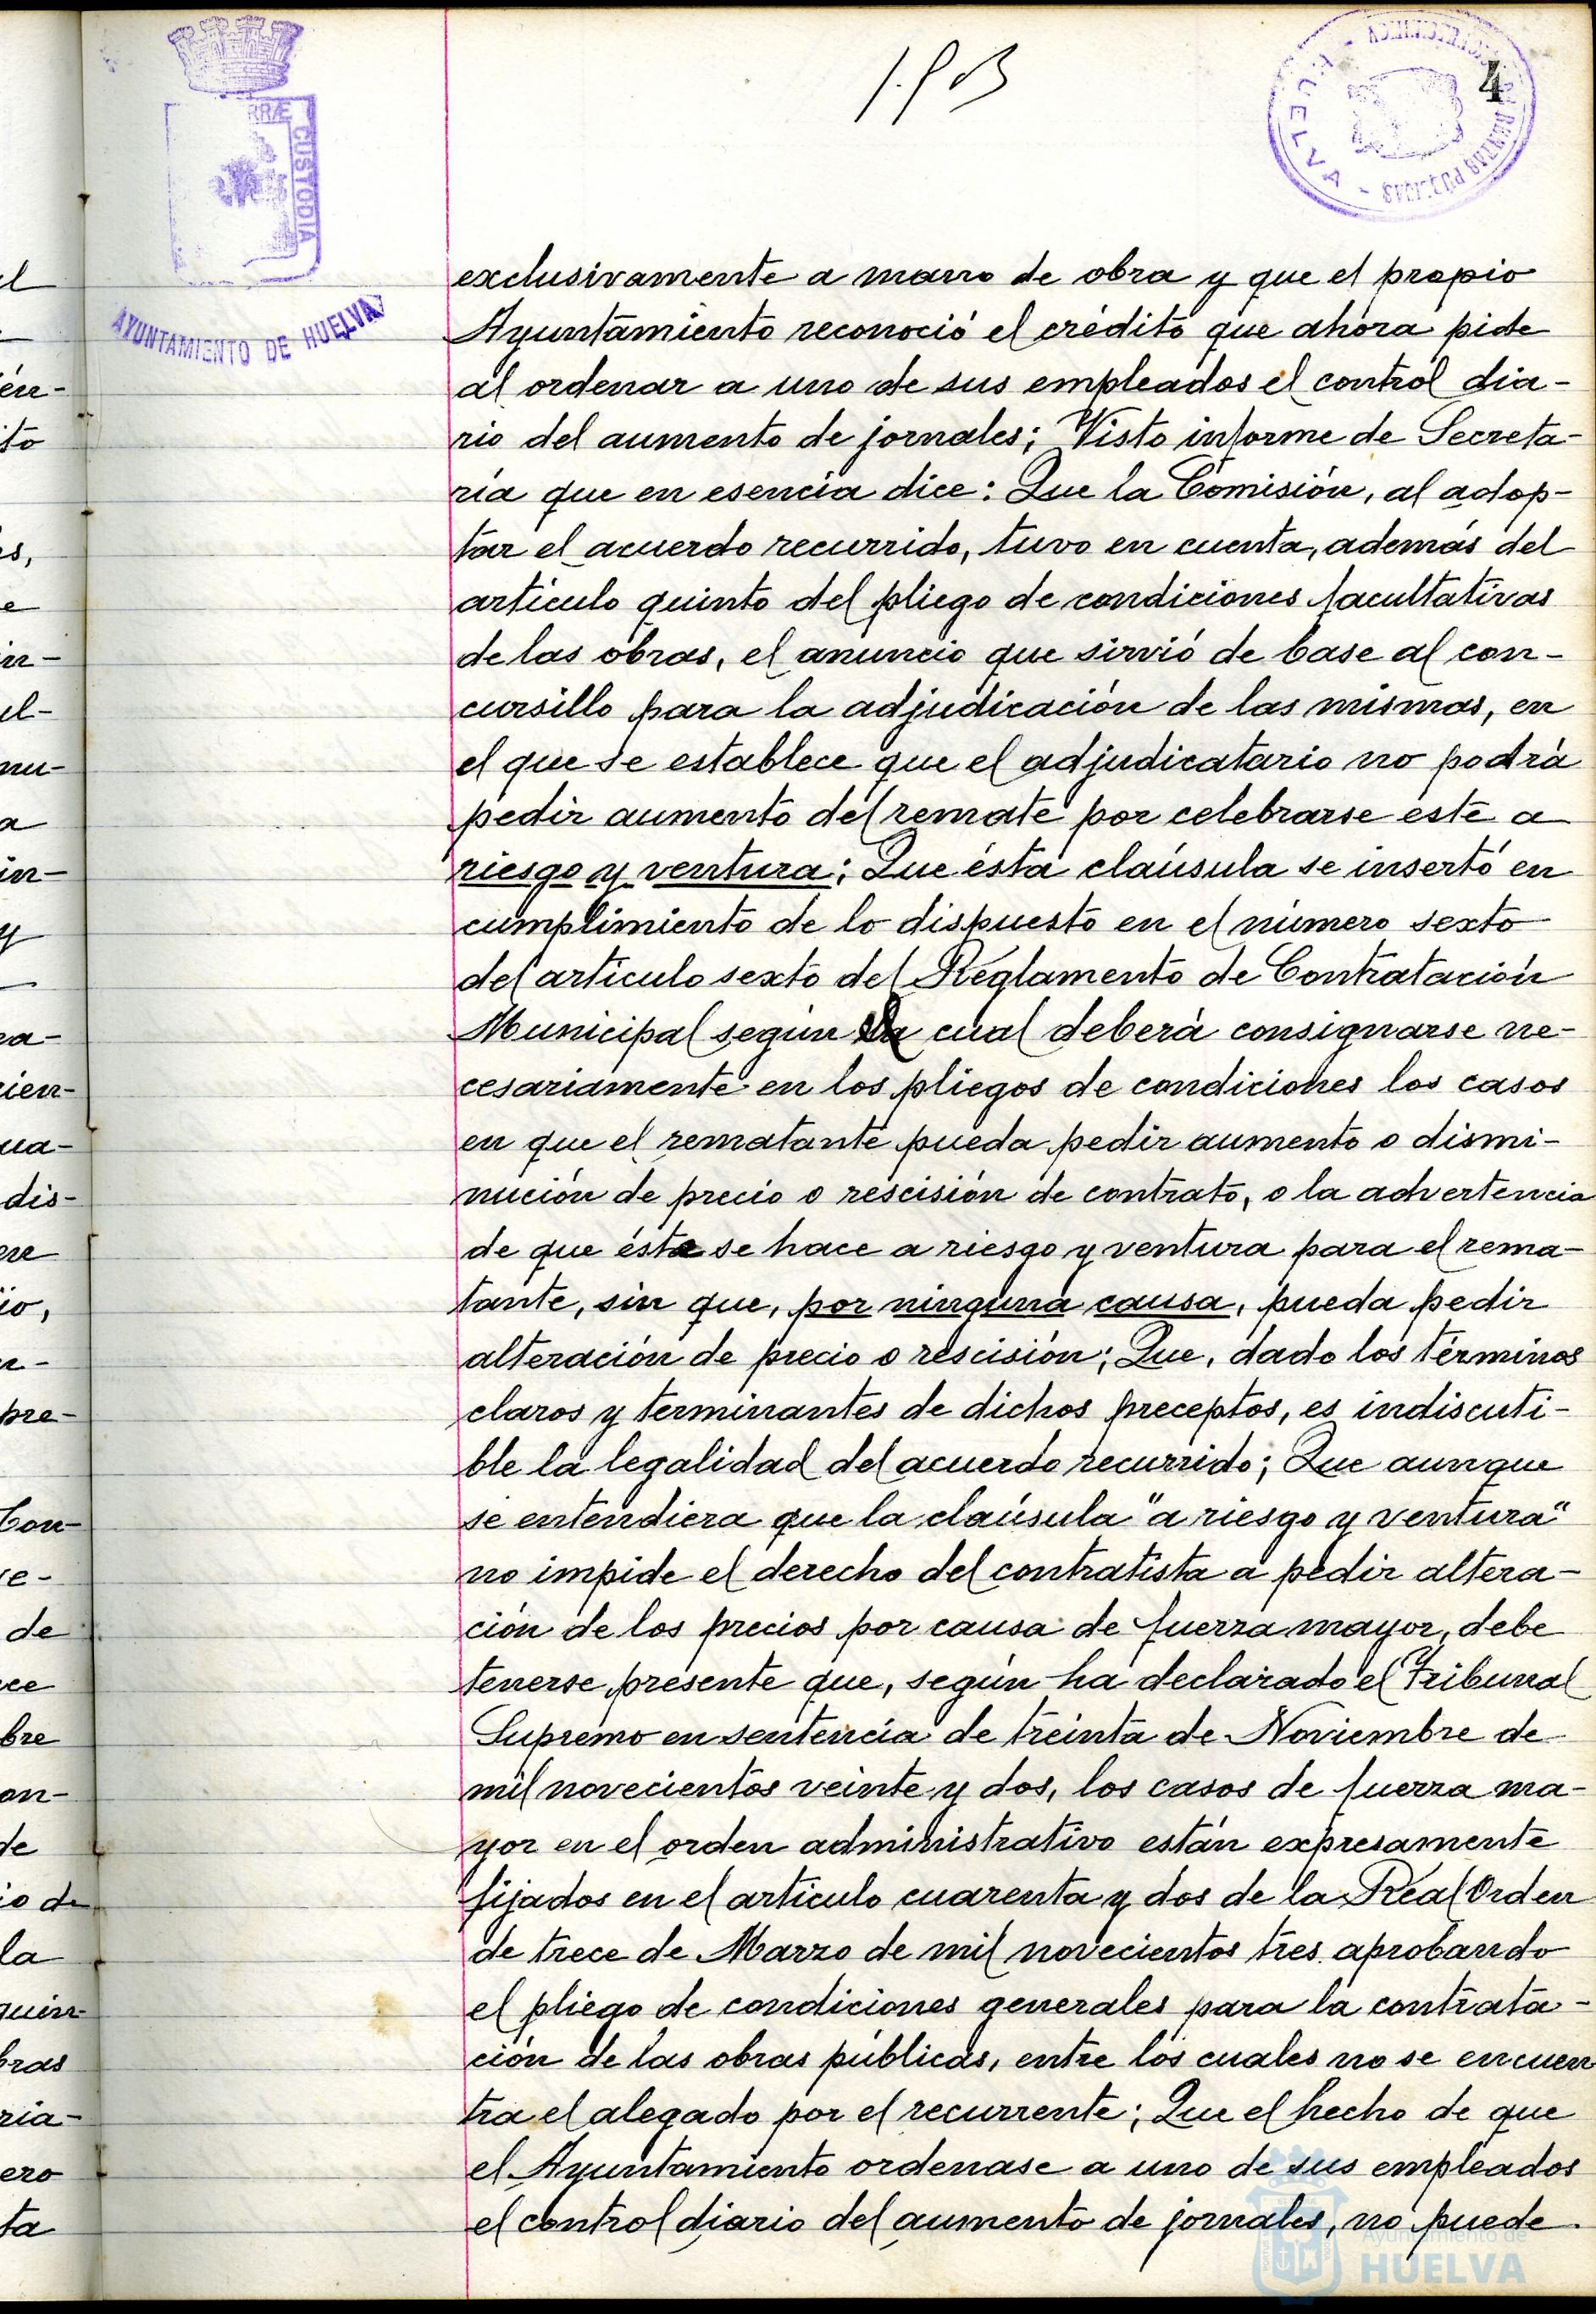 1.903
4
RRÆ
CUSTODIA
AYUNTAMIENTO DE HUELVA
HUELVA
exclusivamente a mano de obra y que el propio
Ayuntamiento reconoció el crédito que ahora pide
al ordenar a uno de sus empleados el control dia-
rio del aumento de jornales; Visto informe de Secreta-
ría que en esencia dice: Que la Comisión, al adop-
tar el acuerdo recurrido, tuvo en cuenta, además del
artículo quinto del pliego de condiciones facultativas
de las obras, el anuncio que sirvió de base al con-
cursillo para la adjudicación de las mismas, en
el que se establece que el adjudicatario no podrá
pedir aumento del remate por celebrarse éste a
riesgo y ventura; Que ésta claúsula se insertó en
cumplimiento de lo dispuesto en el número sexto
del artículo sexto del Reglamento de Contratación
Municipal según la cual deberá consignarse ne-
cesariamente en los pliegos de condiciones los casos
en que el rematante pueda pedir aumento o dismi-
nución de precio o rescisión de contrato, o la advertencia
de que éste se hace a riesgo y ventura para el rema-
tante, sin que, por ninguna causa, pueda pedir
alteración de precio o rescisión; Que, dado los términos
claros y terminantes de dichos preceptos, es indiscuti-
ble la legalidad del acuerdo recurrido; Que aunque
se entendiera que la claúsula "a riesgo y ventura"
no impide el derecho del contratista a pedir altera-
ción de los precios por causa de fuerza mayor, debe
tenerse presente que, según ha declarado el Tribunal
Supremo en sentencia de treinta de Noviembre de
mil novecientos veinte y dos, los casos de fuerza ma-
yor en el orden administrativo están expresamente
fijados en el artículo cuarenta y dos de la Real Orden
de trece de Marzo de mil novecientos tres aprobando
el pliego de condiciones generales para la contrata-
ción de las obras públicas, entre los cuales no se encuen
tra el alegado por el recurrente; Que el hecho de que
el Ayuntamiento ordenase a uno de sus empleados
el control diario del aumento de jornales, no puede
Ayuntamiento de
HUELVA